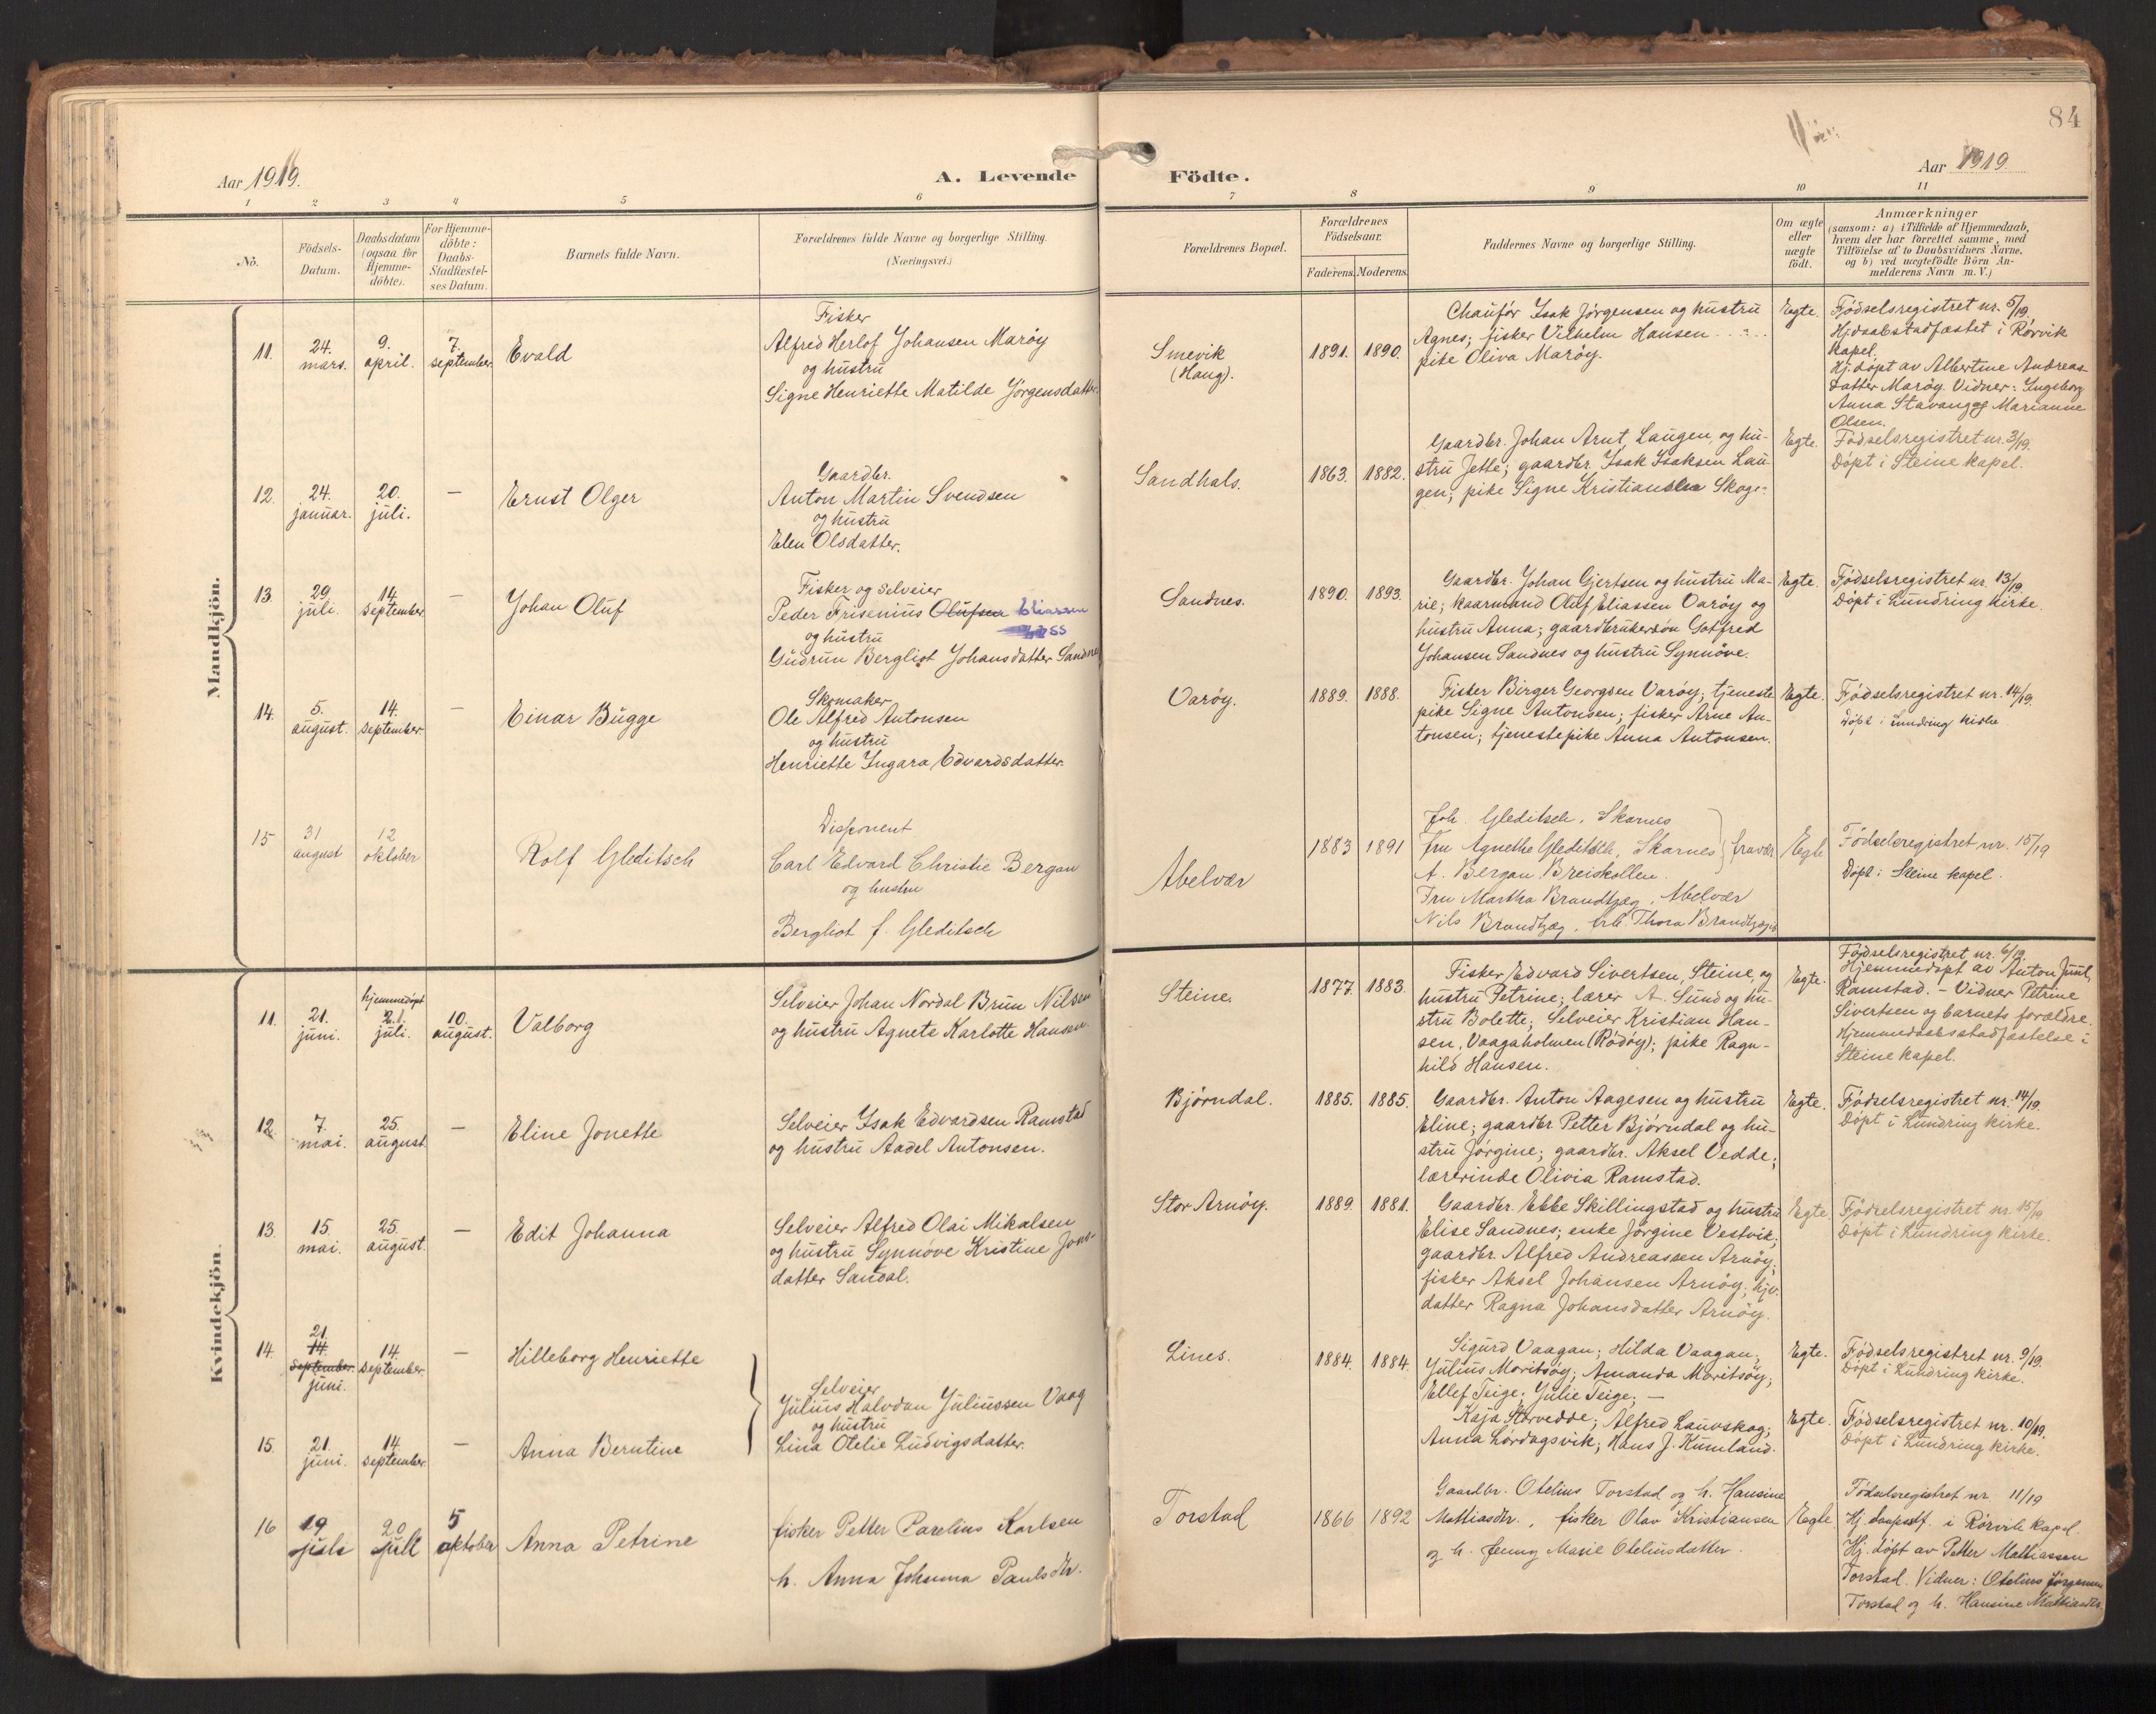 84
Aar 1919.
A. Levende
Födte.
Aar 1919.
1 2 3 4 5 6 7 8 9 10 11
No.
Födsels-
Datum.
Daabsdatum
(ogsaa for
Hjemme-
döbte).
For Hjemme-
döbte:
Daabs-
Stadfæstel-
ses Datum.
Barnets fulde Navn.
Forældrenes fulde Navne og borgerlige Stilling.
(Næringsvei.)
Forældrenes Bopæl.
Forældrenes
Födselsaar.
Faderens. Moderens.
Faddernes Navne og borgerlige Stilling.
Om ægte
eller
uægte
födt.
Anmærkninger
(saasom: a) i Tilfælde af Hjemmedaab,
hvem der har forrettet samme, med
Tilföielse af to Daabsvidners Navne,
og b) ved uægtefödte Börn An-
melderens Navn m. V.)
Mandkjön.
11.
24.
mars.
9.
april.
7.
september.
Evald
Fisker
Alfred Herlof Johansen Marøy
og hustru
Signe Henriette Matilde Jørgensdatter.
Smevik
(Haug).
1891. 1890.
Chauför Isak Jørgensen og hustru
Agnes; fisker Vilhelm Hansen
pike Oliva Marøy.
Egte.
Fødselsregistret nr. 5/19.
Hj.daabstadfæstet i Rørvik
kapel.
Hj. døpt av Albertine Andreas-
datter Marøy. Vidner: Ingeborg
Anna Stavang og Marianne
Olsen.
12.
24.
januar.
20.
juli.
—
Ernst Olger
Gaardbr.
Anton Martin Svendsen
og hustru
Elen Olsdatter.
Sandhals.
1863. 1882.
Gaardbr. Johan Arnt Laugen, og hu-
stru Jette; gaardbr. Isak Isaksen Lau-
gen; pike Signe Kristiansen Skoge-
Egte.
Fødselsregistret nr. 3/19.
Døpt i Steine kapel.
13.
29.
juli.
14.
september.
—
Johan Oluf
Fisker og selveier
Peder Frisenius Olufsen Eliassen
og hustru
Gudrun Bergliot Johansdatter Sandnes
Sandnes.
1890. 1893.
Gaardbr. Johan Gjertsen og hustru Ma-
rie; kaarmand Oluf Eliassen Varøy og
hustru Anna; gaardbrukersøn Gotfred
Johansen Sandnes og hustru Synnøve.
Egte.
Fødselsregistret nr. 13/19.
Døpt i Lundring kirke.
14.
5.
august.
14.
september.
—
Einar Bugge
Skomaker
Ole Alfred Antonsen
og hustru
Henriette Ingara Edvardsdatter.
Varøy.
1889. 1888.
Fisker Birger Georgsen Varøy; tjeneste
pike Signe Antonsen; fisker Arne An-
tonsen; tjenestepike Anna Antonsen.
Egte.
Fødselsregistret nr. 14/19.
Døpt i Lundring kirke
15
31
august
12
oktober
Rolf Gleditsch
Disponent
Carl Edvard Christie Bergan
og hustru
Bergliot f. Gleditsch
Abelvær
1883 1891
Joh. Gleditsch, Skarnes
Fru Agnethe Gleditsch, Skarnes } fravær
A. Bergan Breiskollen.
Fru Martha Brandtzæg, Abelvær
Nils Brandtzæg, Thora Brandtzæg
Egte
Fødselsregistret nr. 15/19
Døpt i Steine kapel.
Kvindekjön.
11.
21.
juni.
hjemmedøpt
21.
juli.
10.
august.
Valborg
Selveier Johan Nordal Brun Nilsen
og hustru Agnete Karlotte Hansen
Steine.
1877. 1883.
Fisker Edvard Sivertsen, Steine, og
hustru Petrine; lærer A. Sund og hu-
stru Bolette; Selveier Kristian Han-
sen, Vaagaholmen (Rødøy); pike Ragn-
hild Hansen.
Egte.
Fødselsregistret nr. 6/19.
Hjemmedøpt av Anton Juul
Ramstad. – Vidner Petrine
Sivertsen og barnets forældre.
Hjemmedaabsstadfæstelse i
Steine kapel.
12.
7.
mai.
25.
august
—
Eline Jonette
Selveier Isak Edvardsen Ramstad
og hustru Aadel Antonsen.
Bjørndal.
1885. 1885.
Gaardbr. Anton Aagesen og hustru
Eline; gaardbr Petter Bjørndal og hu-
stru Jørgine; gaardbr. Aksel Vedde;
lærerinde Olivia Ramstad.
Egte.
Fødselsregistret nr. 14/19.
Døpt i Lundring kirke.
13.
15.
mai.
25.
august.
—
Edit Johanna
Selveier Alfred Olai Mikalsen
og hustru Synnøve Kristine Jons-
datter Sandal.
Stor Arnøy.
1889. 1881.
Gaardbr. Ebbe Skillingstad og hustru
Elise Sandnes; enke Jørgine Vestvik;
gaardbr. Alfred Andreassen Arnøy;
fisker Aksel Johansen Arnøy; hjv.
datter Ragna Johansdatter Arnøy.
Egte.
Fødselsregistret nr. 15/19
Døpt i Lundring kirke.
14.
21.
14.
september.
juni.
14.
september.
—
Hilleborg Henriette
Selveier
Julius Halvdan Juliussen Vaag
og hustru
Lina Otelie Ludvigsdatter.
Lines.
1884. 1884.
Sigurd Vaagan; Hilda Vaagan;
Julius Moritsøy; Amanda Moritsøy;
Ellef Teige; Julie Teige; —
Egte.
Fødselsregistret nr. 9/19.
Døpt i Lundring kirke.
15.
21.
juni.
14.
september
—
Anna Berntine
Kaja Størvedde; Alfred Lauvskog;
Anna Lørdagsvik; Hans J. Kumland.
Egte.
Fødselsregistret nr. 10/19.
Døpt i Lundring kirke.
16
19
juli
20
juli
5
oktober
Anna Petrine
fisker Petter Parelius Karlsen
h. Anna Johanna Paulsdtr.
Torstad
1866 1892
Gaardbr. Otelius Torstad og h. Hansine
Mattiasdtr., fisker Olav Kristiansen
og h. Jenny Marie Oteliusdatter.
Egte
Fødselsregistret nr. 11/19
Hj. daapsstf. i Rørvik kapel.
Hj. døpt av Petter Mattiassen
Torstad. Vidner: Otelius Jørgensen
Torstad og h. Hansine Mattiasdtr.